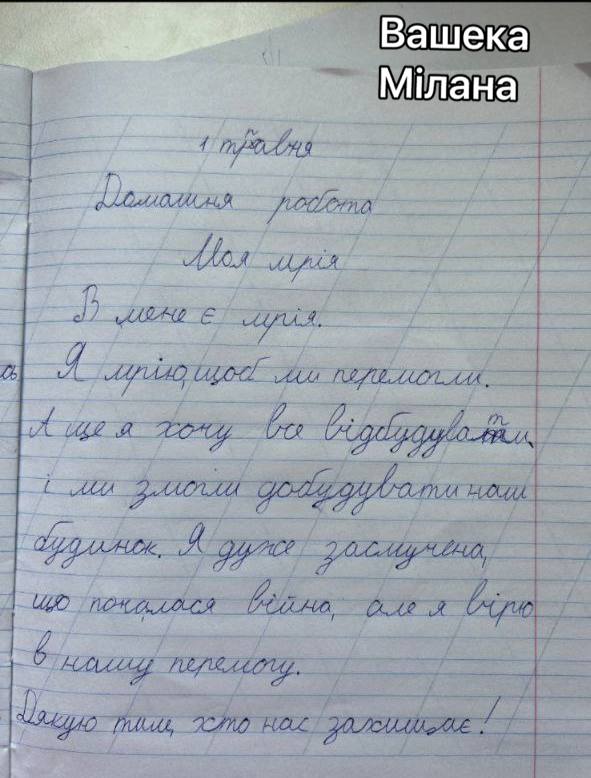 Вашека
Мілана
1 травня
Домашня робота
Моя мрія
В мене є мрія.
Я мрію, щоб ми перемогли.
А ще я хочу все відбудувати,
і ми змогли добудувати наш
будинок. Я дуже засмучена,
що почалася війна, але я вірю
в нашу перемогу.
Дякую тим, хто нас захищає!